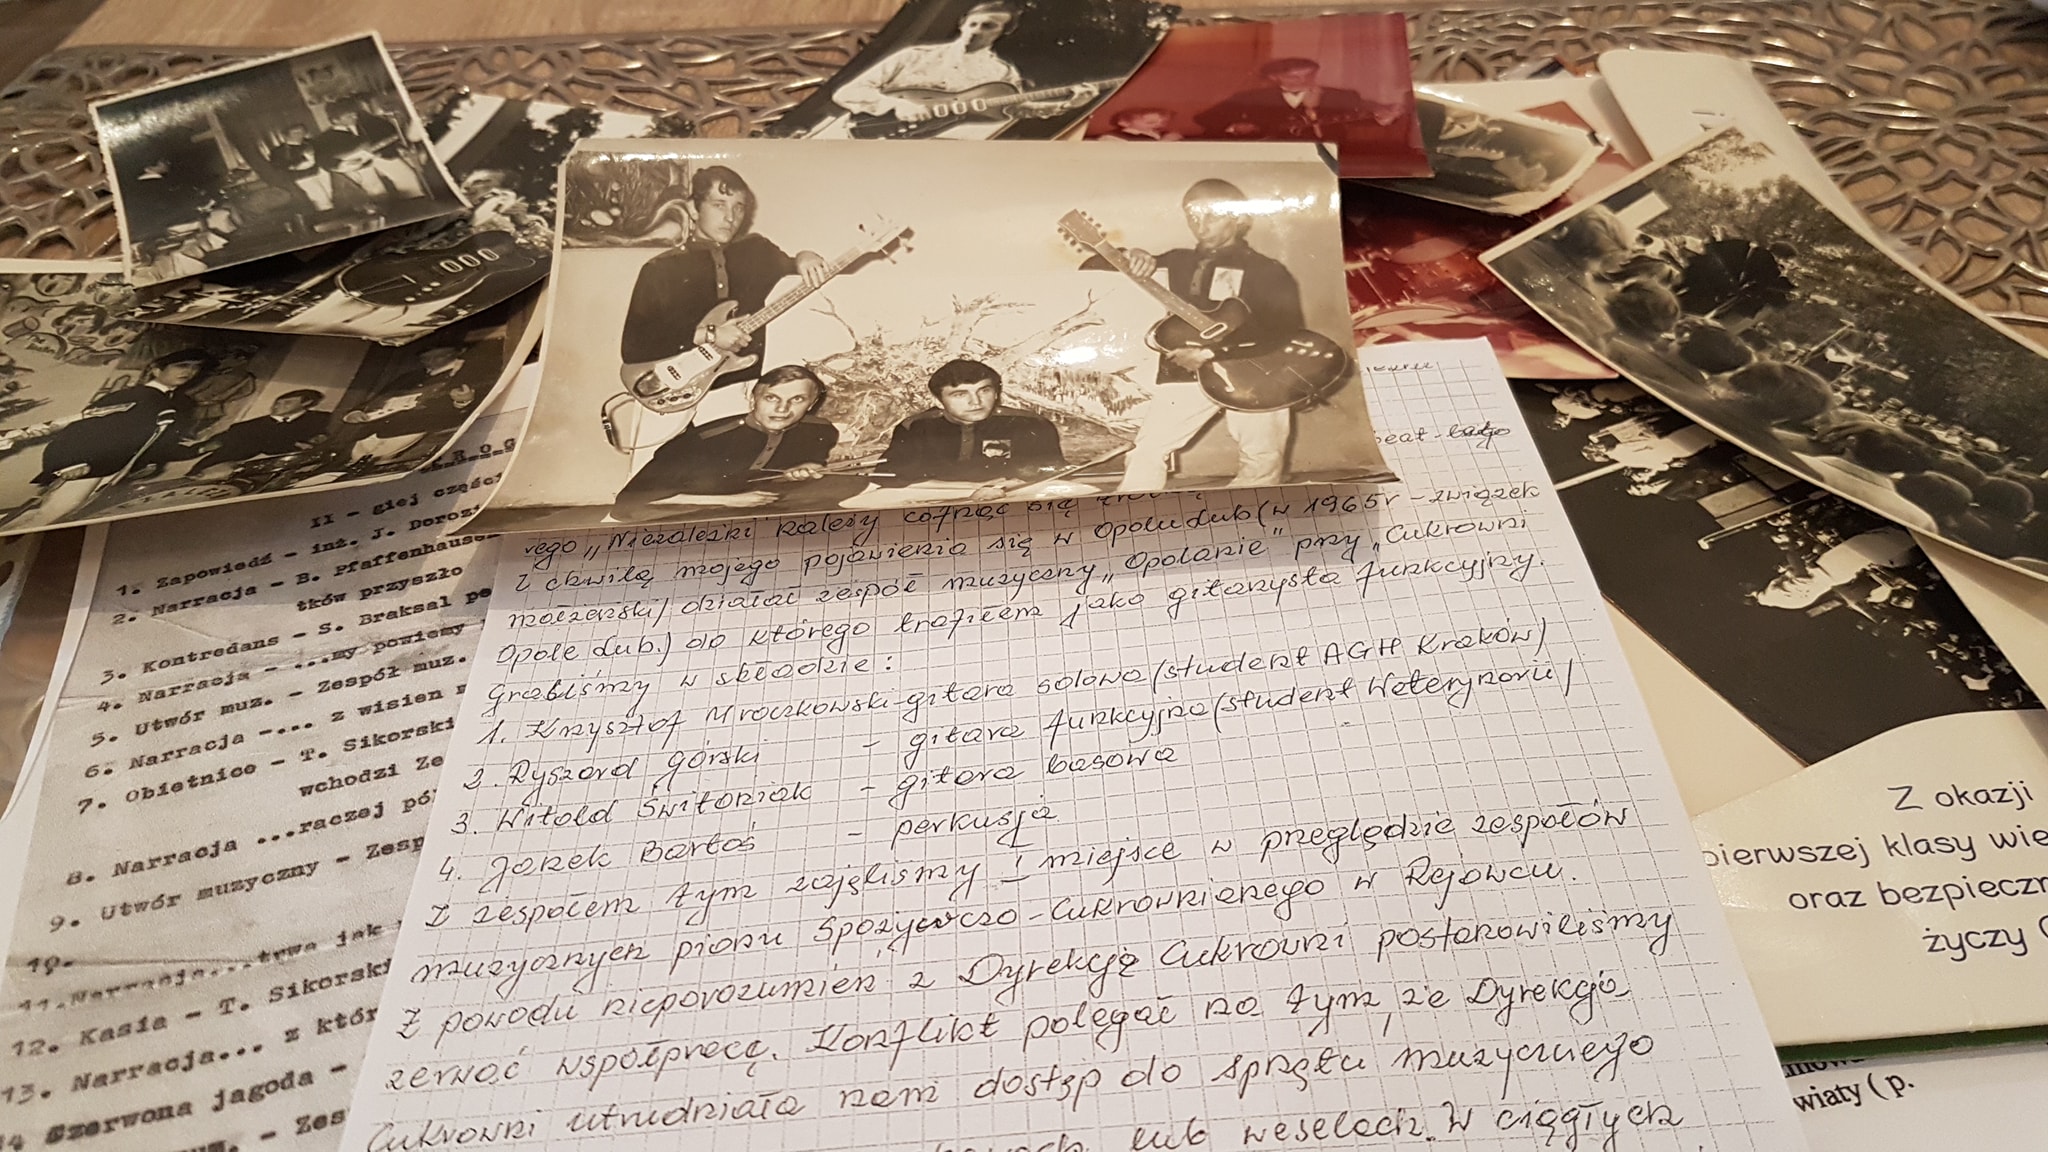 R o g
II - giej części
1. Zapowiedź - inż. J. Dorozi
2. Narracja - B. Pfaffenhause
tków przyszło
3. Kontredans - S. Braksal pe
4. Narracja - ...my powiemy
5. Utwór muz. - Zespół muz.
6. Narracja -... z wisien
7. Obietnice - T. Sikorski
wchodzi Ze
8. Narracja ...raczej pó
9. Utwór muzyczny - Zesp
10.
11. Narracja...trwa jak
12. Kasia - T. Sikorski
13. Narracja... z któr
14 Czerwona jagoda -
um. - Zes
beat-lato
wego „Niezależni należy cofnąć się
Z chwilą mojego pojawienia się w Opolu Lub (w 1965r - związek
małżeński/ działał zespół muzyczny „Opolanie" przy „Cukrowni
Opole Lub.) do którego trafiłem jako gitarzysta funkcyjny.
Graliśmy w składzie:
1. Krzysztof Mroczkowski - gitara solowa (student AGH Kraków)
2. Ryszard Górski - gitara funkcyjna (student Weterynarii/
3. Witold Świtoniak - gitara basowa
4. Janek Bartoś - perkusja
Z zespołem tym zajęliśmy I miejsce w przeglądzie zespołów
muzycznych pionu Spożywczo-Cukrowniczego w Rejowcu.
Z powodu nieporozumień z Dyrekcją Cukrowni postanowiliśmy
zerwać współpracę. Konflikt polegał na tym, że Dyrekcja
Cukrowni utrudniała nam dostęp do sprzętu muzycznego
lub weselach. W ciągłych
Z okazji
pierwszej klasy wie
oraz bezpieczn
życzy
wiaty ( p.